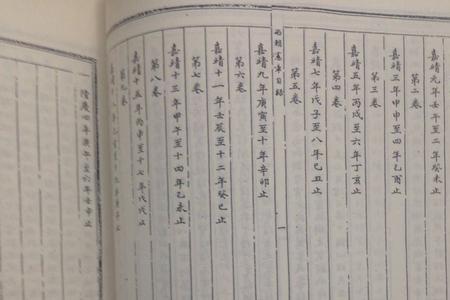 嘉靖元年壬午至二年癸未止
第二卷
嘉靖三年甲申至四年乙酉止
第三卷
嘉靖五年丙戌至六年丁亥止
第四卷
嘉靖七年戊子至八年己丑止
第五卷
目錄
一
嘉靖九年庚寅至十年辛卯止
第六卷
嘉靖十一年壬辰至十二年癸巳止
第七卷
嘉靖十三年甲午至十四年乙未止
第八卷
嘉靖十五年丙申至十七年戊戌止
第九卷
隆慶四年庚午至六年壬申止